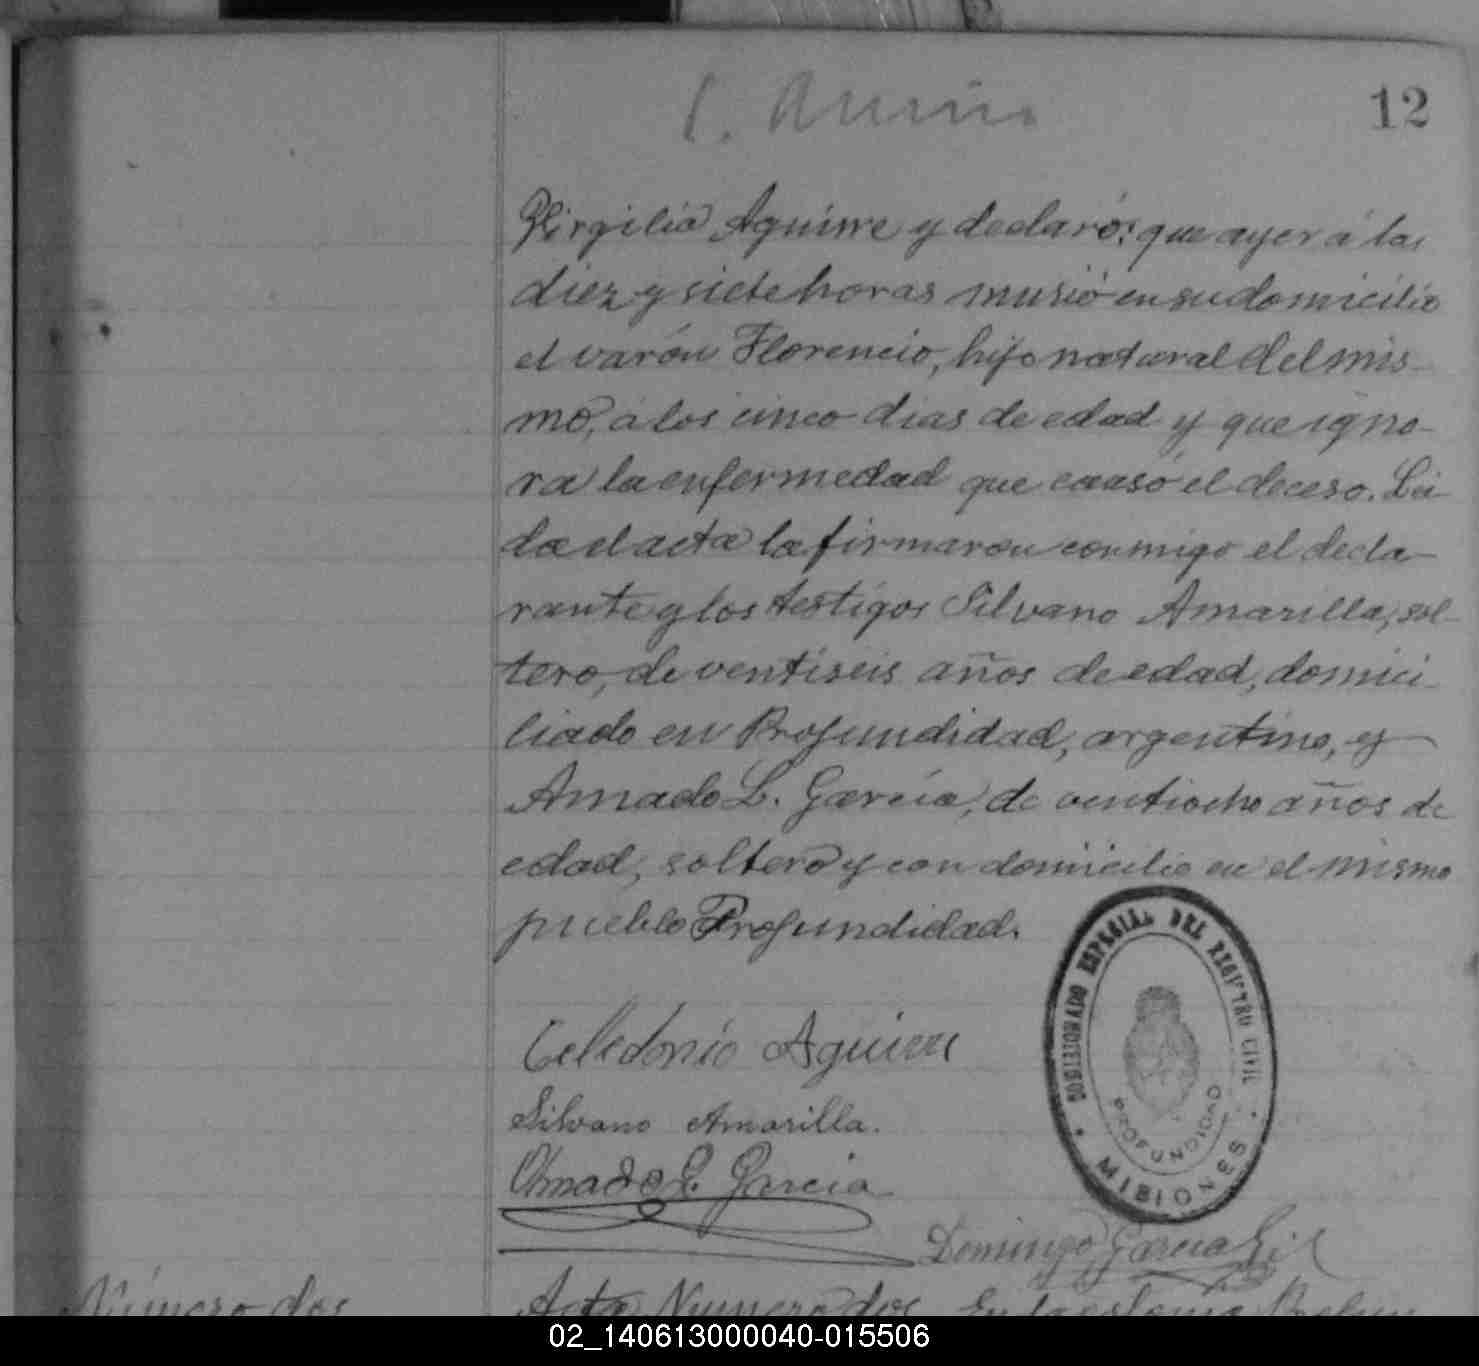 12
Virgilio Aguirre y declaró: que ayer á las
diez y siete horas murió en su domicilio
el varón Florencio, hijo natural del mis-
mo, á los cinco dias de edad y que igno-
ra la enfermedad que causó el deceso. Lei-
da el acta la firmaron conmigo el decla-
rante y los testigos Silvano Amarilla, sol-
tero, de ventiseis años de edad, domici-
liado en Profundidad, argentino, y
Amado L. García, de ventiocho años de
edad, soltero y con domicilio en el mismo
pueblo Profundidad.
COMISIONADO ESPECIAL DEL REGISTRO CIVIL
PROFUNDIDAD
MISIONES
Celedonio Aguirre
Silvano Amarilla.
Amado L. Garcia
Domingo Garcia Gil
Número dos
Acta Numero dos En la colonia Profun
02_140613000040-015506